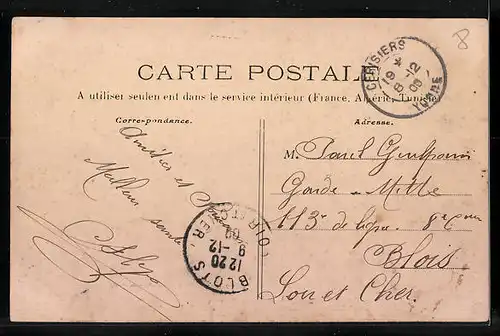 8
CARTE POSTALE
A utiliser seulement dans le service intérieur (France, Algérie, Tunisie
Correspondance.
Adresse.
CERISIERS
19 *
8 -12
09
YONNE
Amitiés et
Meilleure santé
M. Paul
Garde - Mitte
113e de ligne. 8e Cie
Blois
Loir et Cher.
BLOIS
12 20
9 -12
09
LOIR ET CHER